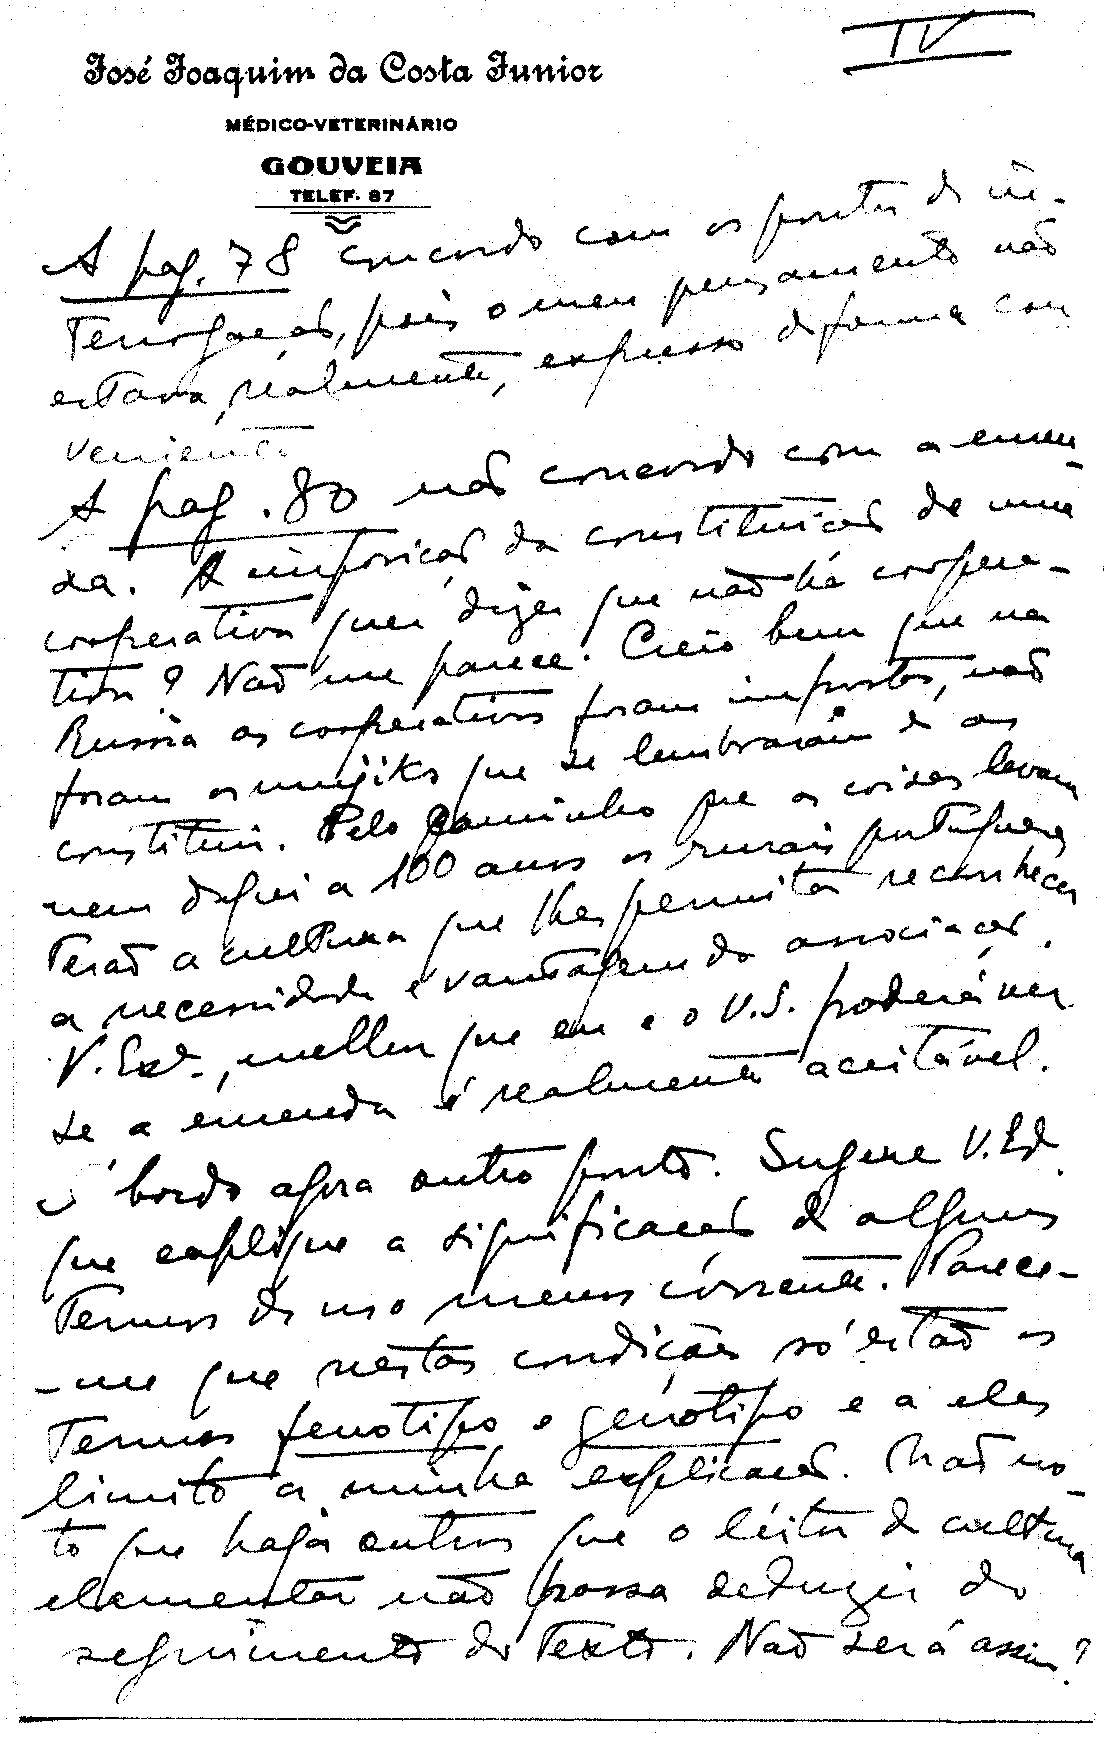 IV
José Joaquim da Costa Junior
MÉDICO-VETERINÁRIO
GOUVEIA
TELEF. 87
A pag. 78 concordo com os pontos de in-
terrogação, pois o meu pensamento não
estava, realmente, expresso de forma con
veniente
A pag. 80 não concordo com a emen-
da. A imposição da constituição de uma
cooperativa quer dizer que não há coopera-
tiva? Não me parece. Creio bem que na
Russia as cooperativas foram impostas, não
foram os mujiks que se lembraram de as
constituir. Pelo caminho que as coisas levam
nem daqui a 100 anos os rurais portugueses
terão a cultura que lhes permita reconhecer
a necessidade e vantagem da associação.
V. Exª., melhor que eu e o V.S. poderá ver
se a emenda é realmente aceitável.
Abordo agora outro ponto. Sugere V. Exª
que explique a significação de alguns
termos de uso menos corrente. Parece-
-me que nestas condições só estão os
termos fenotipo e génotipo e a eles
limito a minha explicação. Não no-
to que haja outros que o leitor de cultura
elementar não possa deduzir do
seguimento do texto. Não será assim?